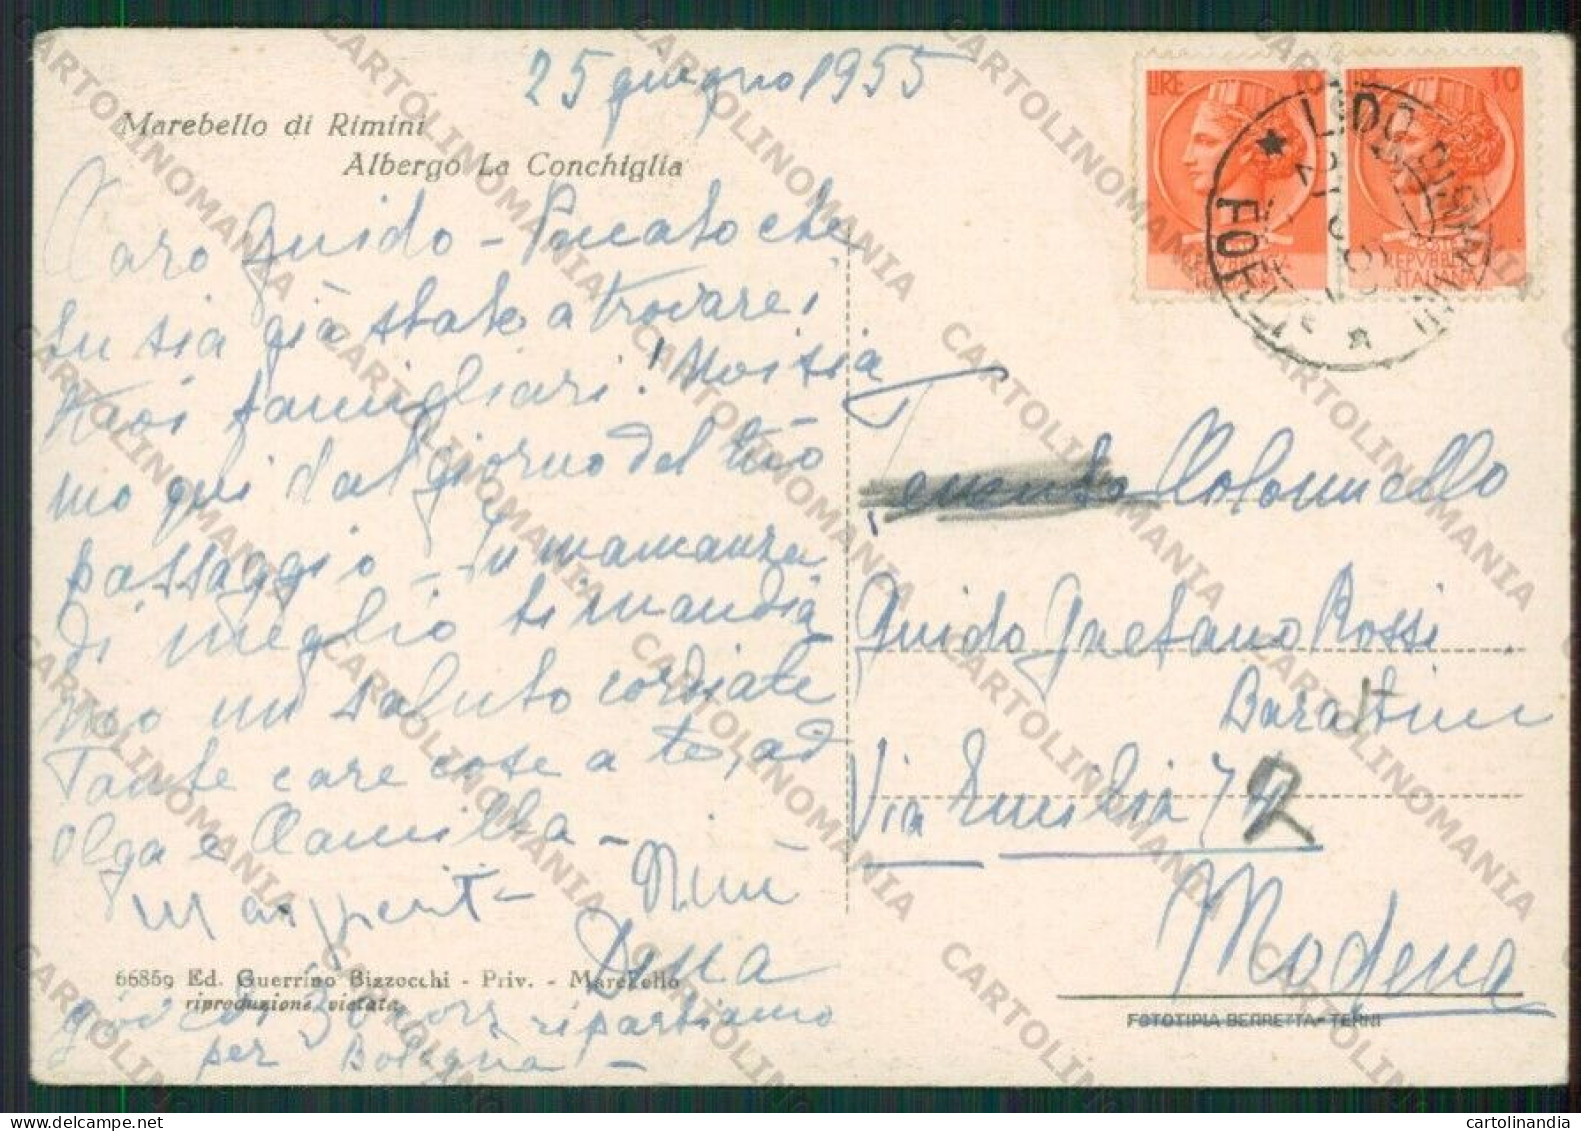 25 giugno 1955
Marebello di Rimini
Albergo La Conchiglia
Caro Guido - Peccato che
tu sia già stato a trovare i
tuoi famigliari! Noi sia
mo qui dal giorno del tuo
passaggio - In mancanza
di meglio ti mandia
mo un saluto cordiale
Tante care cose a te, ad
Olga e Camilla -
Ninì
66859 Ed. Guerrino Bizzocchi - Priv. - Marebello
riproduzione vietata
30 corr. ripartiamo
per Bologna -
LIRE 10
LIRE 10
REPVBBLICA
ITALIANA
LIDO DI RIMINI
FORLI
Colonnello
Guido Gaetano Rossi
Barattini
Via Emilia
Modena
FOTOTIPIA BERRETTA - TERNI
CARTOLINOMANIA
cartolinandia